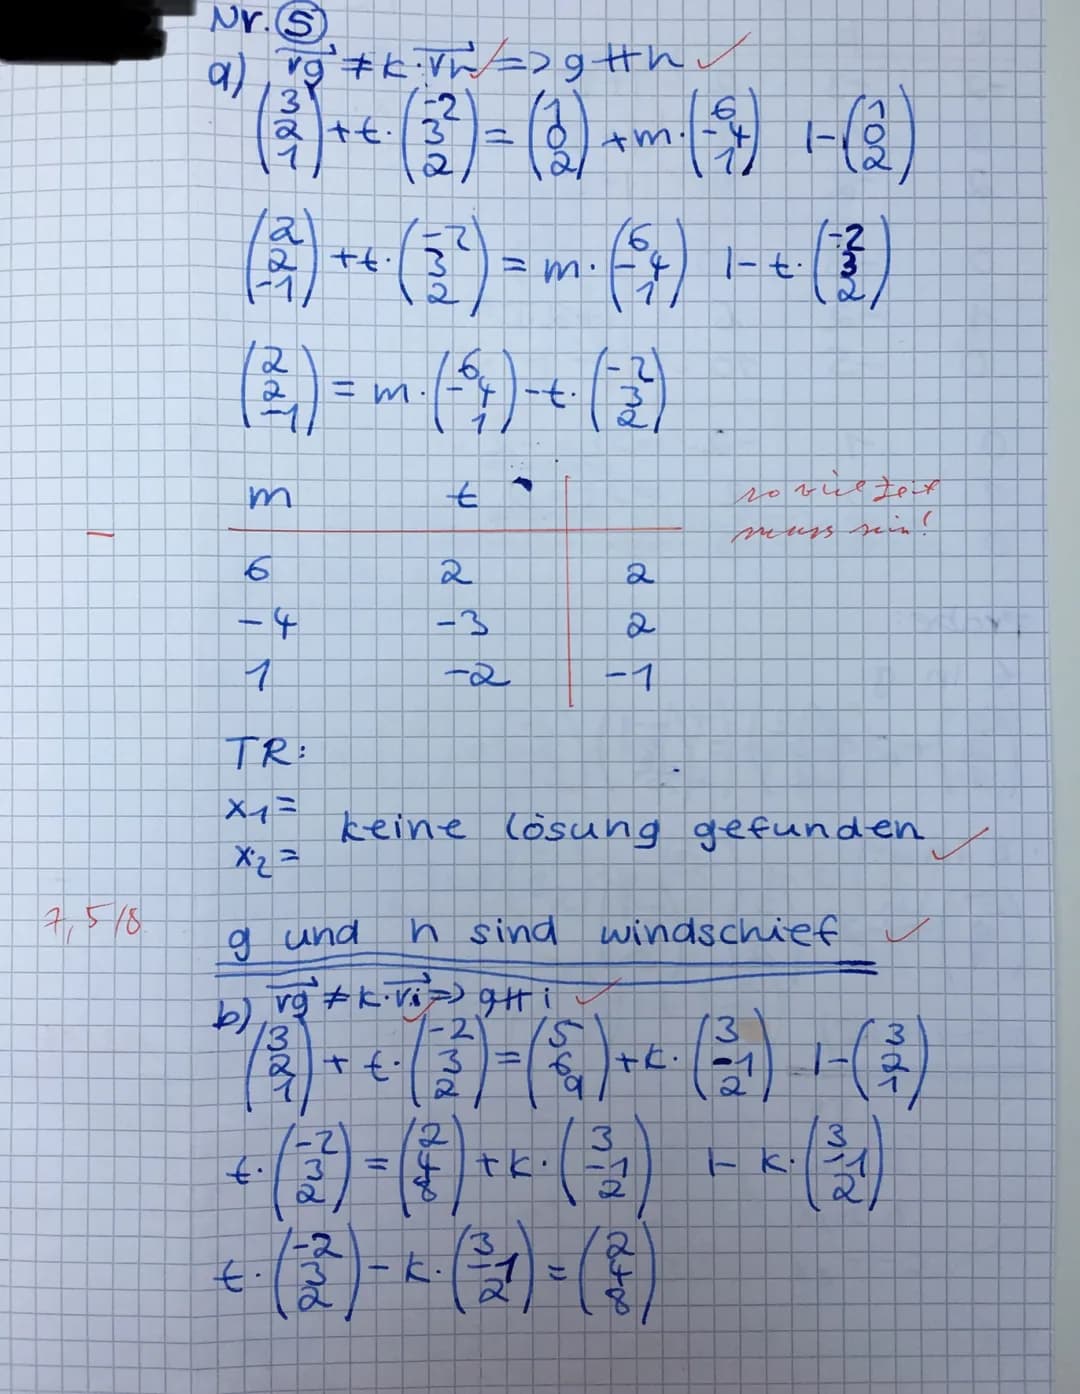 Nr. 5
a) rg ≠ k·rh => g ∦ h ✓
(3 2 1) + t·(-2 3 2) = (1 0 2) + m·(6 -4 1) |-(1 0 2)
(2 2 -1) + t·(-2 3 2) = m·(6 -4 1) |-t·(-2 3 2)
(2 2 -1) = m·(6 -4 1) - t·(-2 3 2)
m t
so viel Zeit
muss sein!
6 2 2
-4 -3 2
1 -2 -1
TR:
x1 =
x2 =
keine Lösung gefunden ✓
7,5/8
g und h sind windschief ✓
b) rg ≠ k·ri => g ∦ i ✓
(3 2 1) + t·(-2 3 2) = (5 6 9) + k·(3 -1 2) |-(3 2 1)
t·(-2 3 2) = (2 4 8) + k·(3 -1 2) |- k·(3 -1 2)
t·(-2 3 2) - k·(3 -1 2) = (2 4 8)